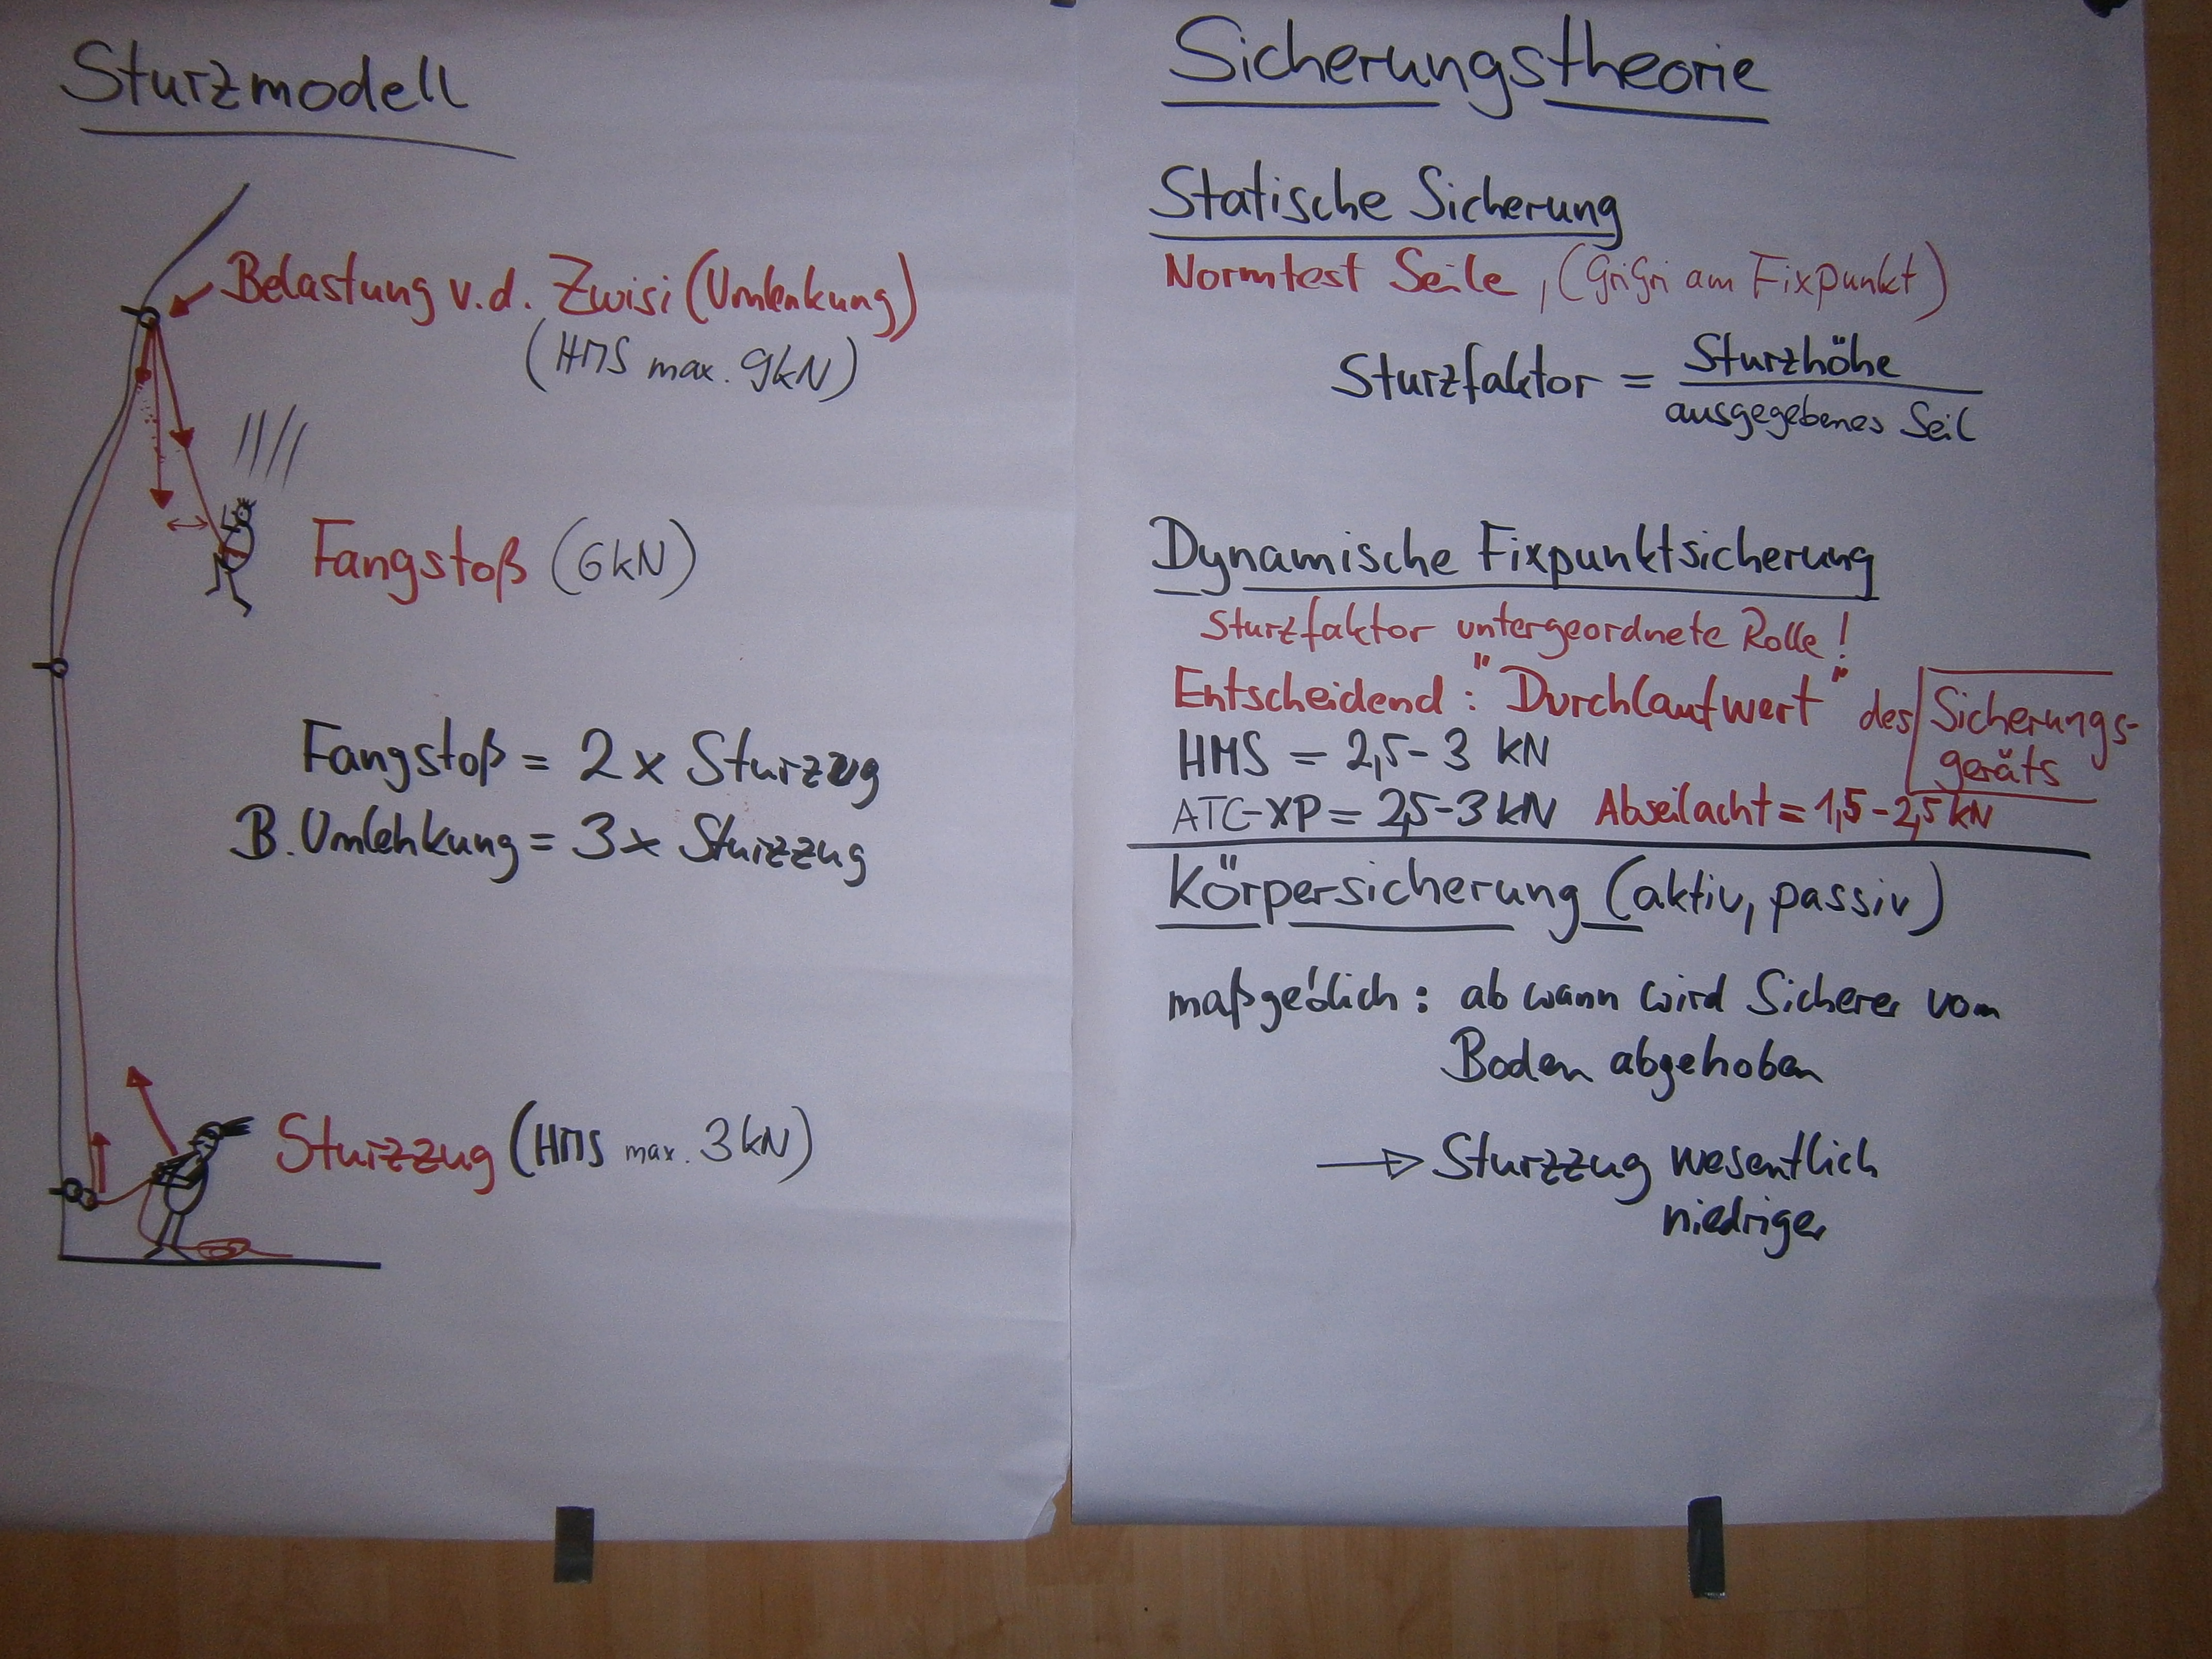 Sturzmodell
Belastung v.d. Zwisi (Umlenkung)
(HMS max. 9kN)
Fangstoß (6kN)
Fangstoß = 2 x Sturzzug
B. Umlenkung = 3 x Sturzzug
Sturzzug (HMS max. 3kN)
Sicherungstheorie
Statische Sicherung
Normtest Seile, (GriGri am Fixpunkt)
Sturzfaktor = Sturzhöhe
ausgegebenes Seil
Dynamische Fixpunktsicherung
Sturzfaktor untergeordnete Rolle!
Entscheidend: "Durchlaufwert" des Sicherungs-
geräts
HMS = 2,5-3 kN
ATC-XP = 2,5-3 kN Abseilacht = 1,5-2,5 kN
Körpersicherung (aktiv, passiv)
maßgeblich: ab wann wird Sicherer vom
Boden abgehoben
→ Sturzzug wesentlich
niedriger